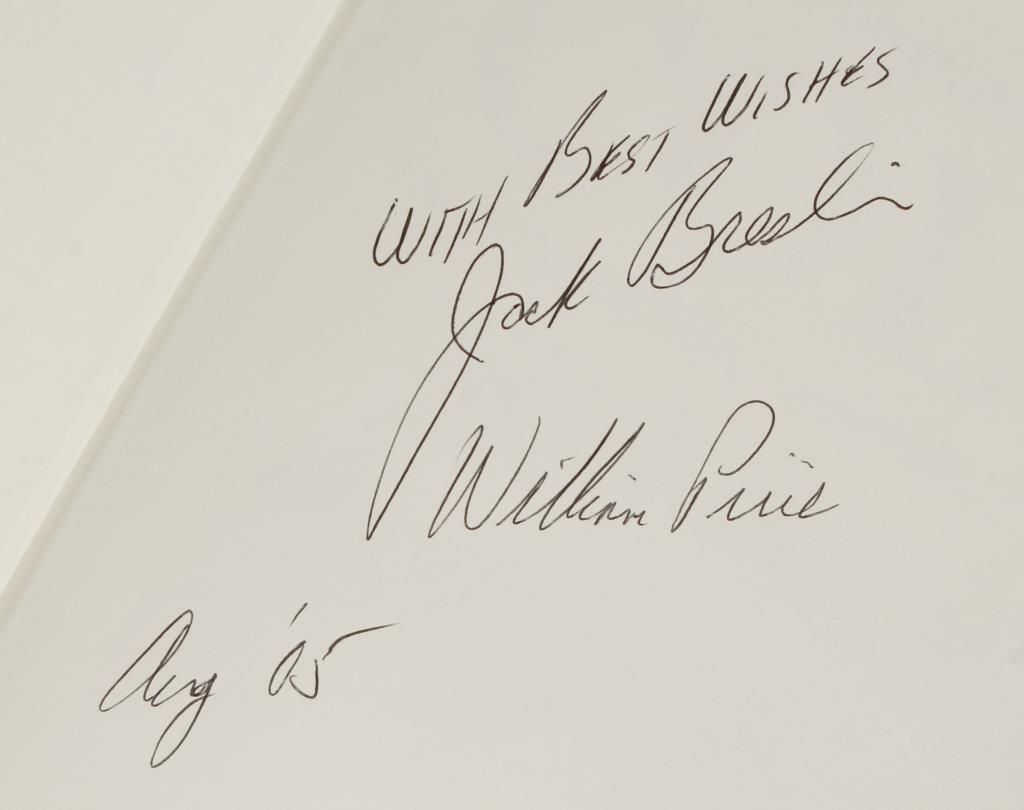 WITH BEST WISHES
Jack Breslin
William Pirie
Aug '05